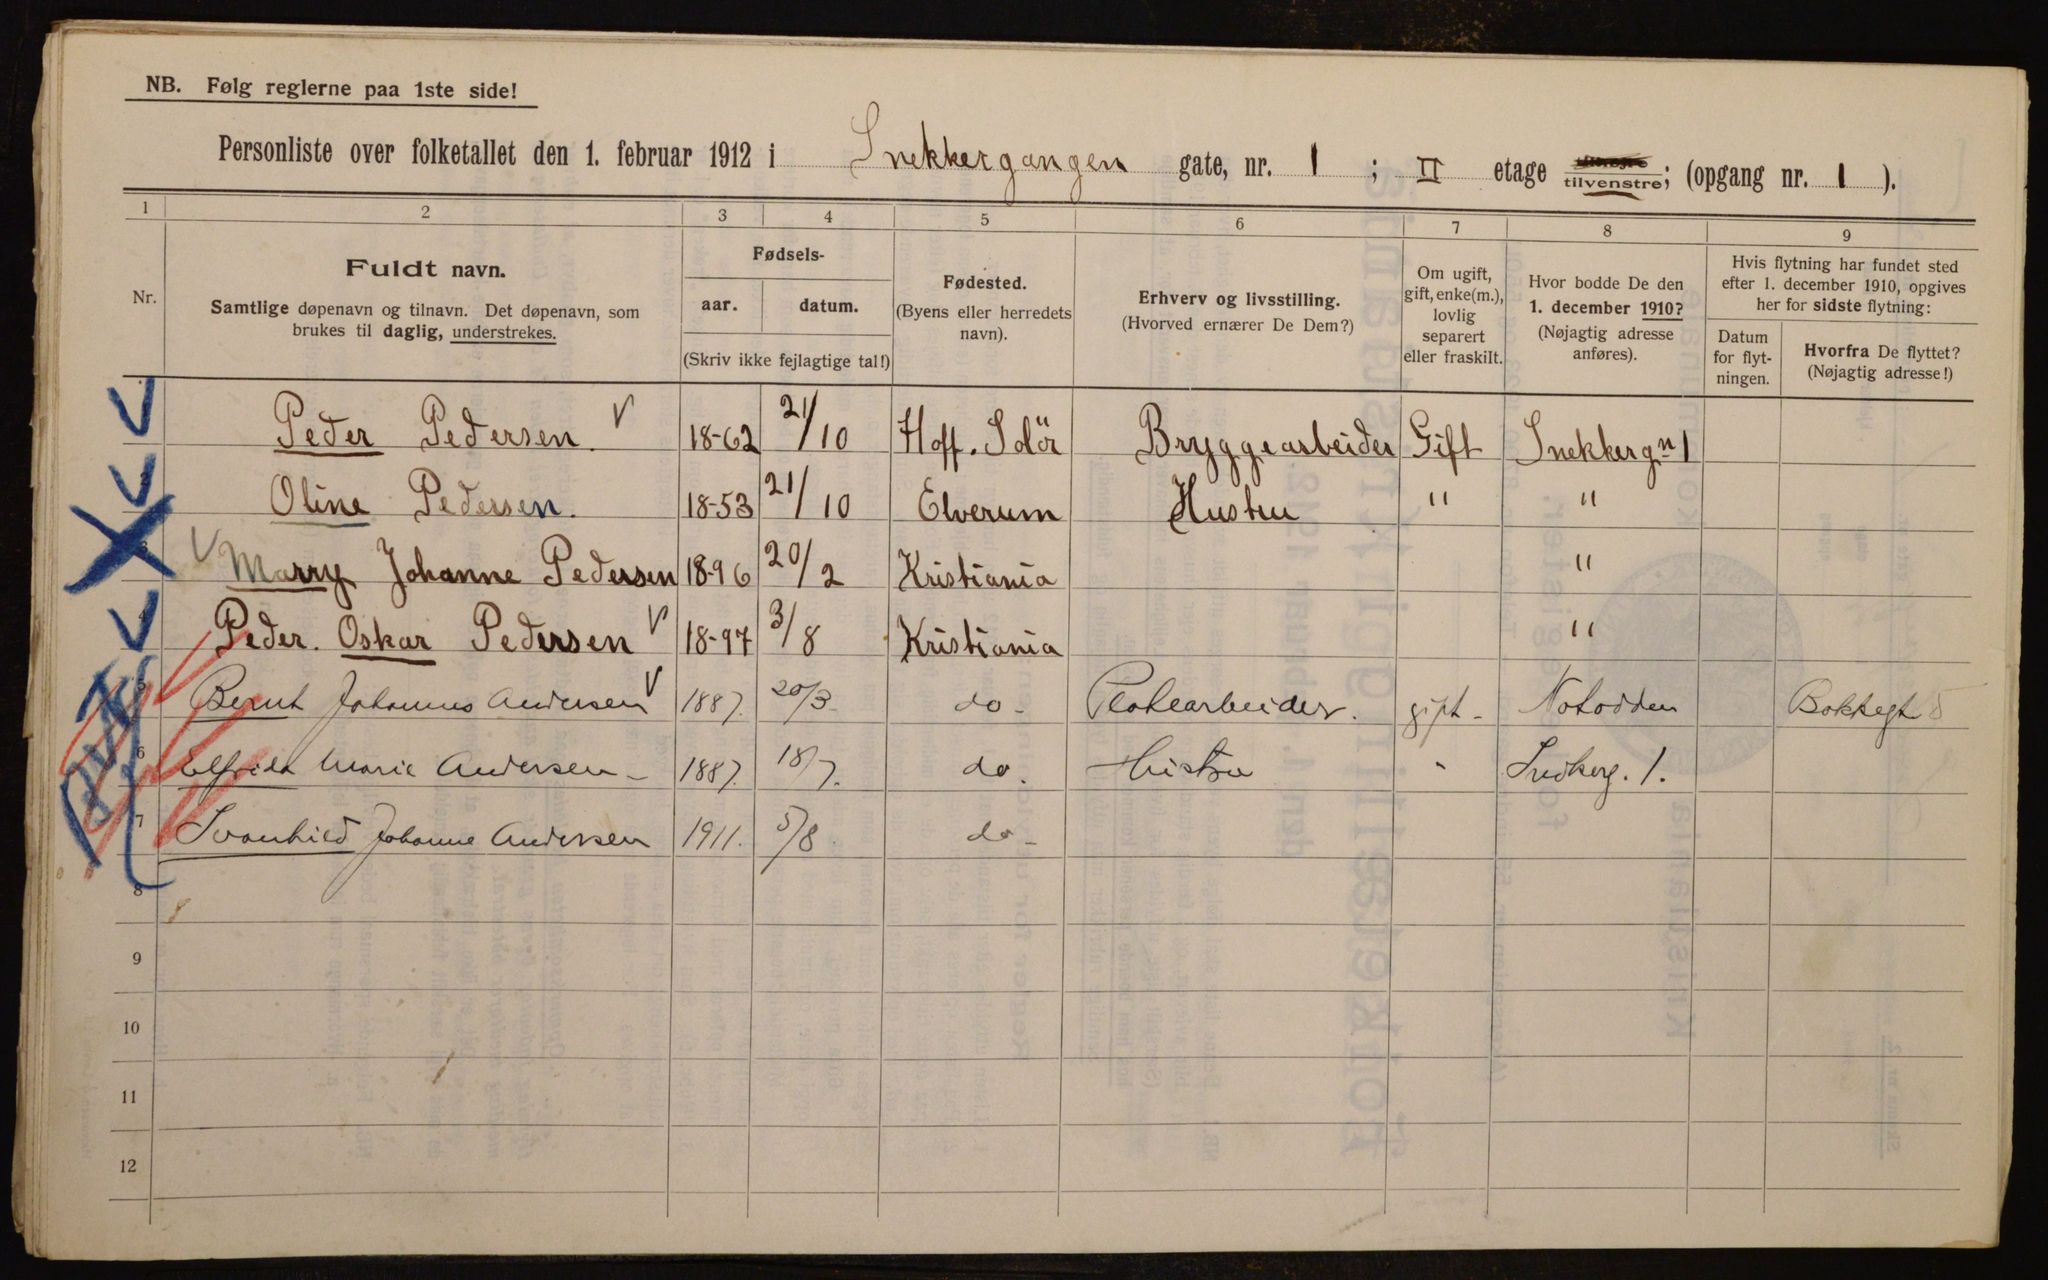 NB. Følg reglerne paa 1ste side!
Personliste over folketallet den 1. februar 1912 i Snekkergangen gate, nr. 1 ; II etage tilvenstre; (opgang nr. 1 ).
1 2 3 4 5 6 7 8 9
Nr.
Fuldt navn.
Samtlige døpenavn og tilnavn. Det døpenavn, som
brukes til daglig, understrekes.
Fødsels-
aar. datum.
(Skriv ikke fejlagtige tal!)
Fødested.
(Byens eller herredets
navn).
Erhverv og livsstilling.
(Hvorved ernærer De Dem?)
Om ugift,
gift, enke(m.),
lovlig
separert
eller fraskilt.
Hvor bodde De den
1. december 1910?
(Nøjagtig adresse
anføres).
Hvis flytning har fundet sted
efter 1. december 1910, opgives
her for sidste flytning:
Datum
for flyt-
ningen.
Hvorfra De flyttet?
(Nøjagtig adresse!)
Peder Pedersen. V 18-62 21/10 Hoff. Solör Bryggearbeider Gift Snekkergn 1
Oline Pedersen. 18-53 21/10 Elverum Hustru " "
V Marry Johanne Pedersen 18-96 20/2 Kristiania "
4 Peder. Oskar Pedersen V 18-97 3/8 Kristiania "
5 Bernt Johannes Andersen V 1887. 20/3 do - gift - Notodden Bakkegt 5
6 Elfrida Marie Andersen - 1887. 18/7. do. Hustru " Snekkerg. 1.
7 Svanhild Johanne Andersen 1911. 5/8 do -
8
9
10
11
12